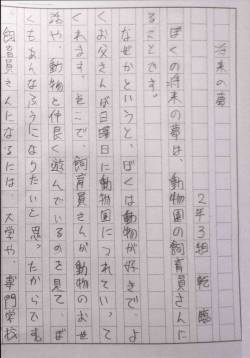 将来の夢
２年３組 転 臨
ぼくの将来の夢は、動物園の飼育員さんに
なることです。
なぜかというと、ぼくは動物が好きで、よ
くお父さんは日曜日に動物園につれていって
くれます。そこで、飼育員さんが動物のお世
話や、動物と仲良く遊んでいるのを見て、ぼ
くもあんなふうになりたいと思ったからです
飼育員さんになるには、大学や、専門学校